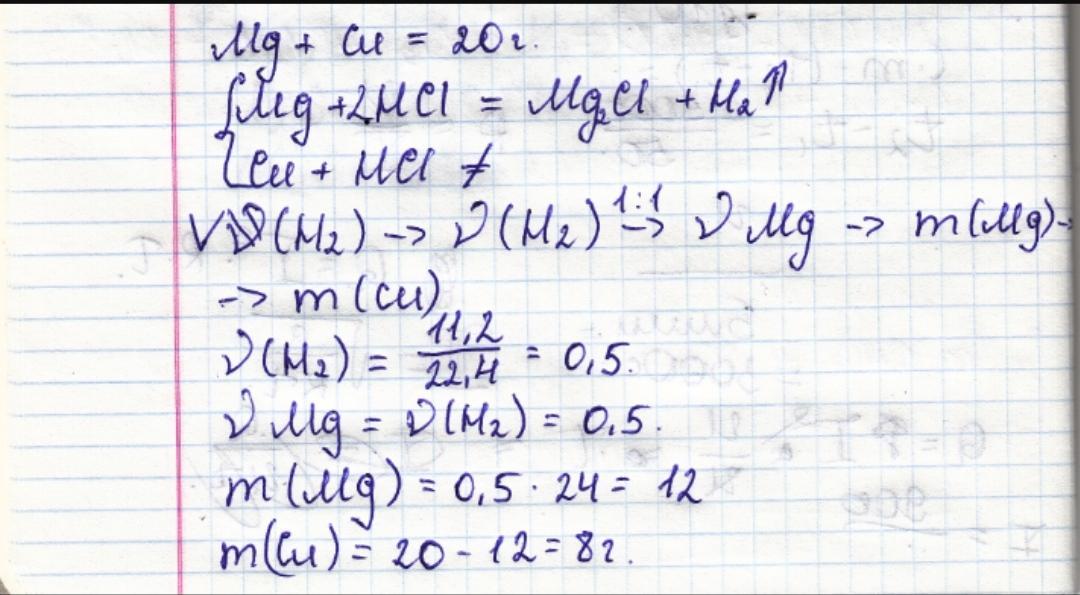 Mg + Cu = 20г.
Mg + 2HCl = Mg₂Cl + H₂↑
Cu + HCl ≠
V(H₂) -> ν(H₂) 1:1 -> ν Mg -> m(Mg) ->
-> m(Cu)
ν(H₂) = 11,2/22,4 = 0,5.
ν Mg = ν(H₂) = 0,5.
m(Mg) = 0,5 · 24 = 12
m(Cu) = 20 - 12 = 8г.